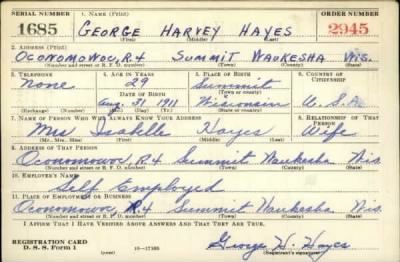 SERIAL NUMBER 1. NAME (Print) ORDER NUMBER
1685 GEORGE HARVEY HAYES 2945
(First) (Middle) (Last)
2. ADDRESS (Print)
OCONOMOWOC, R4 SUMMIT WAUKESHA WIS.
(Number and street or R. F. D. number) (Town) (County) (State)
3. TELEPHONE 4. AGE IN YEARS 5. PLACE OF BIRTH 6. COUNTRY OF CITIZENSHIP
None 29 Summit
DATE OF BIRTH (Town or county)
Aug. 31 1911 Wisconsin U.S.A.
(Exchange) (Number) (Mo.) (Day) (Yr.) (State or country)
7. NAME OF PERSON WHO WILL ALWAYS KNOW YOUR ADDRESS 8. RELATIONSHIP OF THAT PERSON
Mrs Isabelle Hayes Wife
(Mr., Mrs., Miss) (First) (Middle) (Last)
9. ADDRESS OF THAT PERSON
Oconomowoc, R4 Summit Waukesha Wis
(Number and street or R. F. D. number) (Town) (County) (State)
10. EMPLOYER'S NAME
Self Employed
11. PLACE OF EMPLOYMENT OR BUSINESS
Oconomowoc R4 Summit Waukesha Wis.
(Number and street or R. F. D. number) (Town) (County) (State)
I AFFIRM THAT I HAVE VERIFIED ABOVE ANSWERS AND THAT THEY ARE TRUE.
REGISTRATION CARD
D. S. S. Form 1 (over) 16-17105 George H. Hayes
(Registrant's signature)